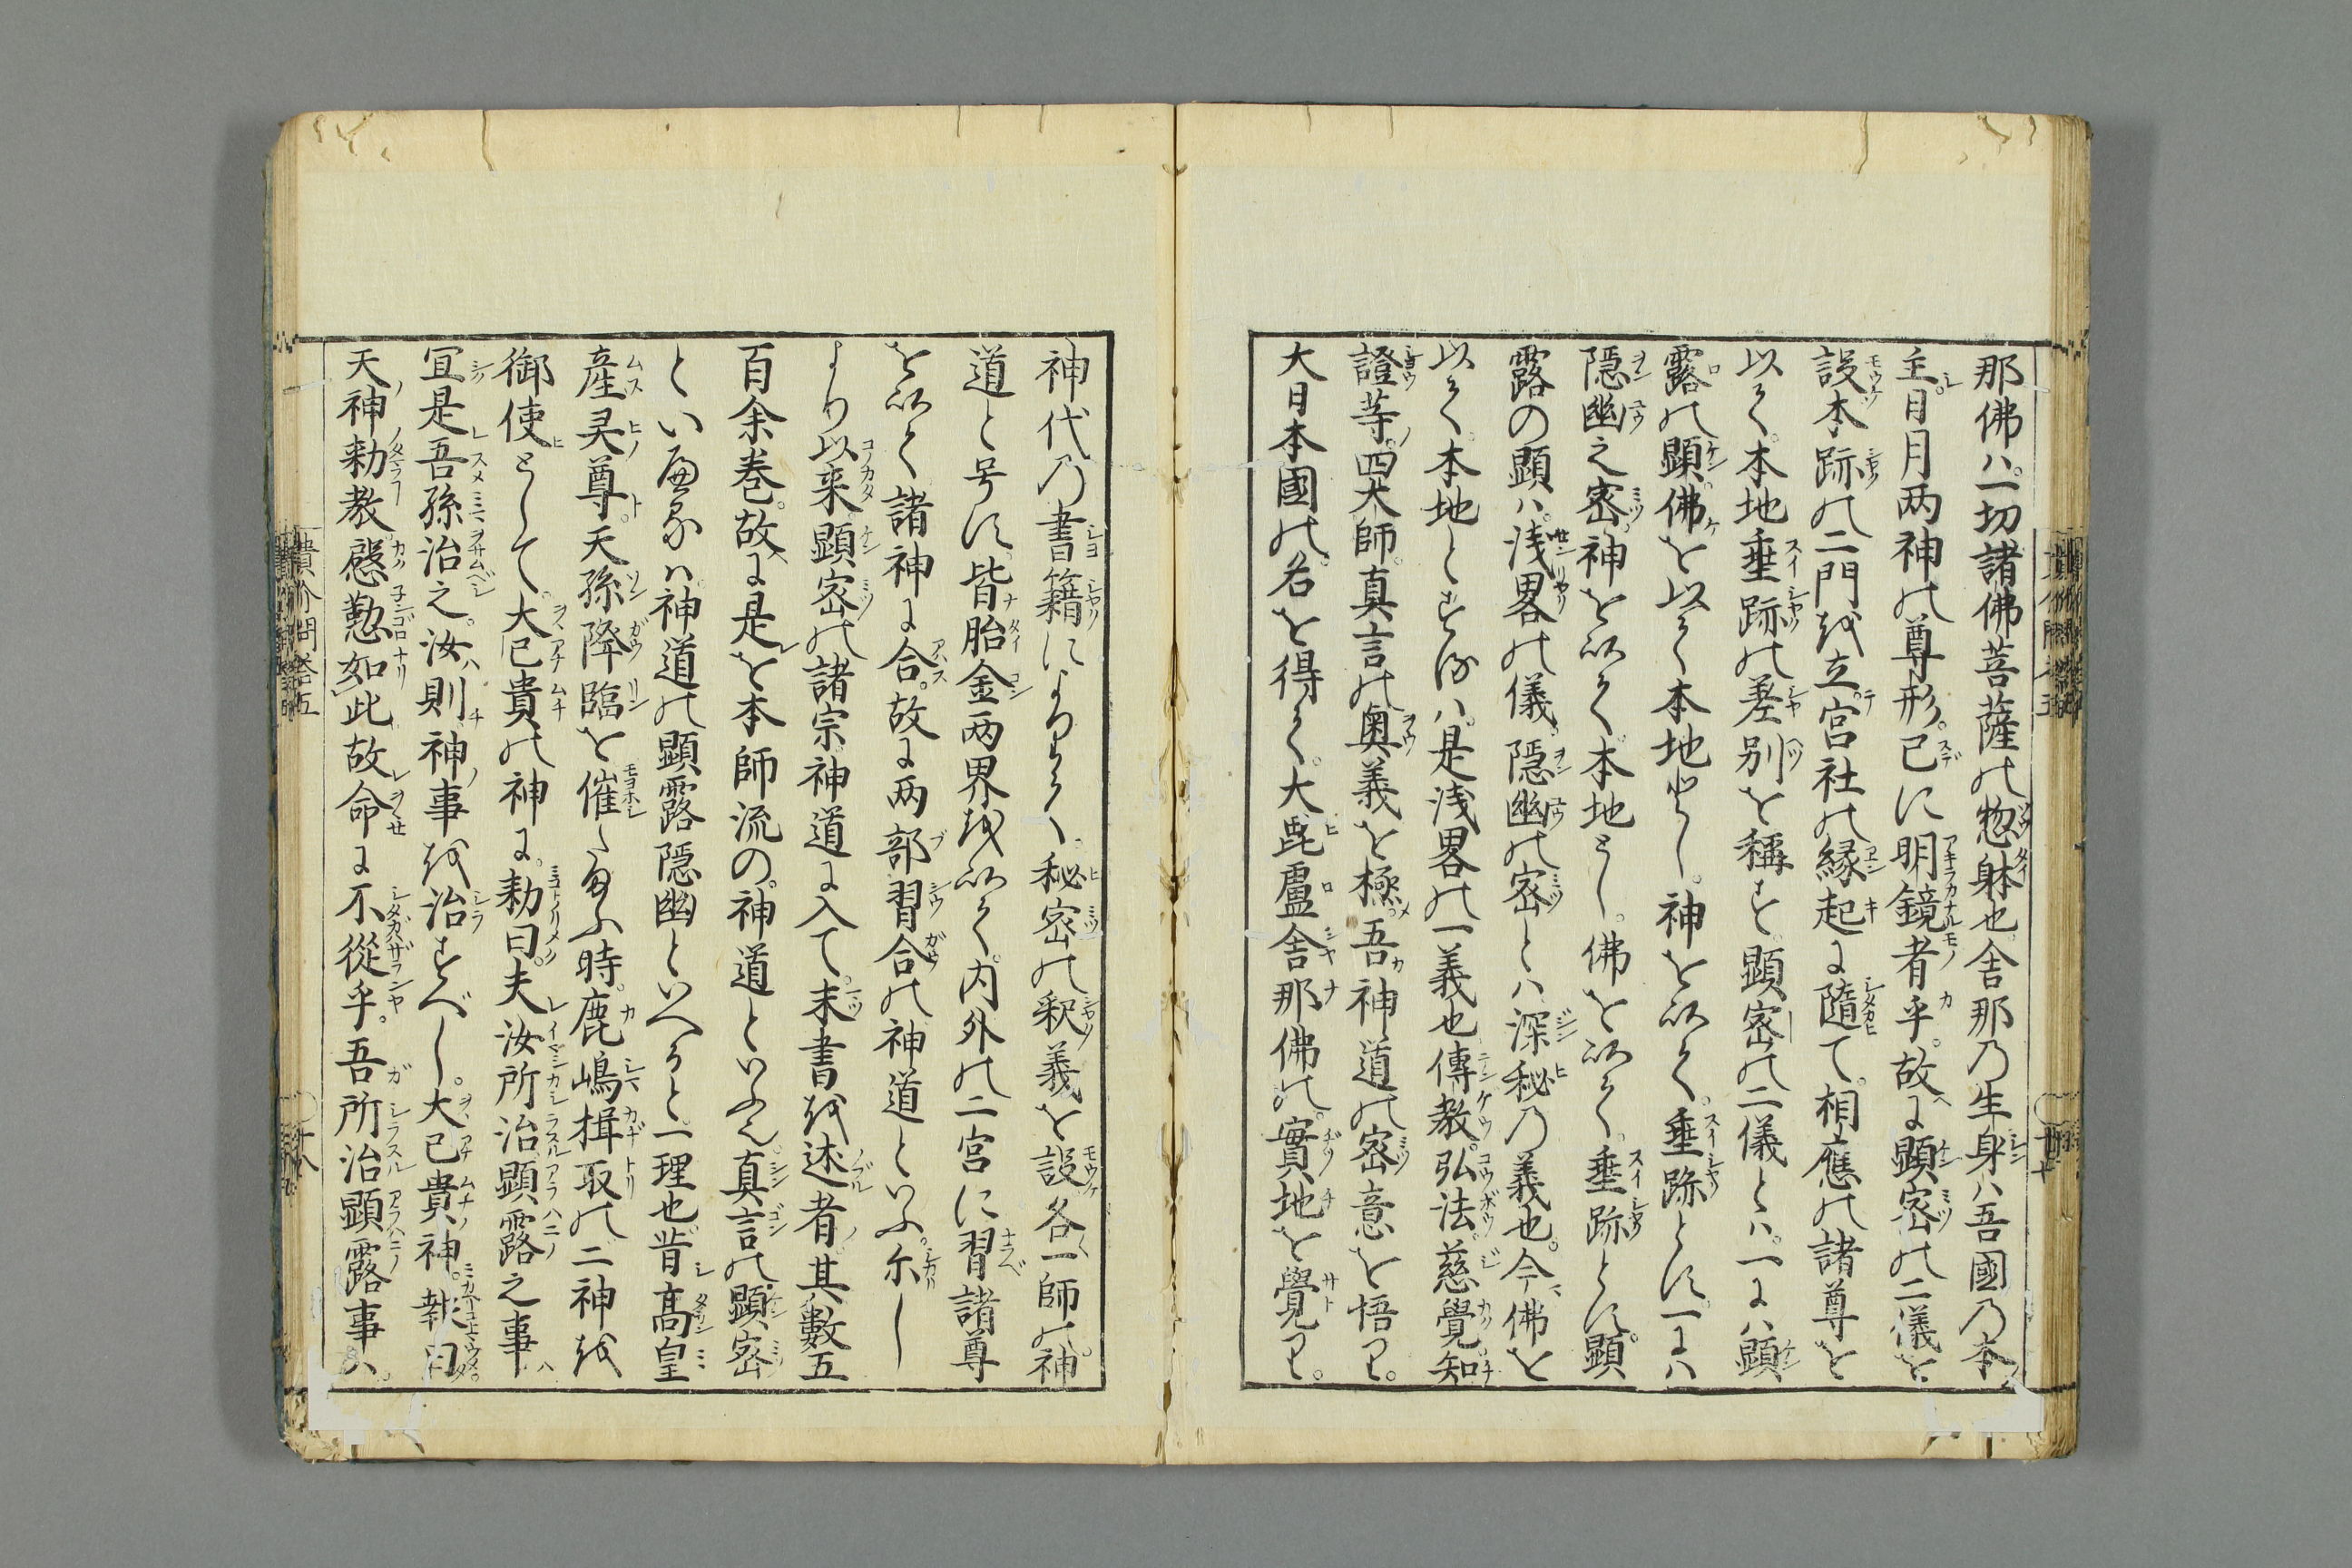 那佛ハ一切諸佛菩薩の惣躰也舎那乃生身ハ吾國乃本
主日月両神の尊形已に明鏡者乎故に顕密の二儀を
設本跡の二門を立宮社の縁起に随て相應の諸尊を
以く本地垂跡の差別を稱す顕密の二儀とハ一にハ顕
露の顕佛を以く本地とし神を以く垂跡とす一にハ
隠幽之密神を以く本地とし佛を以く垂跡とす顕
露の顕ハ浅畧の儀隠幽の密とハ深秘乃義也今佛を
以く本地とするハ是浅畧の一義也傳教弘法慈覺知
證等四大師真言の奥義を極吾神道の密意を悟り
大日本國の名を得く大毘盧舎那佛の實地を覺り
神代乃書籍によつく秘密の釈義を設各一師の神
道と号す皆胎金両界を以く内外の二宮に習諸尊
を以く諸神に合故に両部習合の神道といふ尓し
より以来顕密の諸宗神道に入て末書を述者其數五
百余巻故に是を本師流の神道といふ真言の顕密
といハ神道の顕露隠幽といへると一理也昔高皇
産灵尊天孫降臨を催たまふ時鹿嶋揖取の二神を
御使として大已貴の神に勅曰夫汝所治顕露之事
宜是吾孫治之汝則神事を治すべし大已貴神報曰
天神勅教慇懃如此故命に不從乎吾所治顕露事ハ